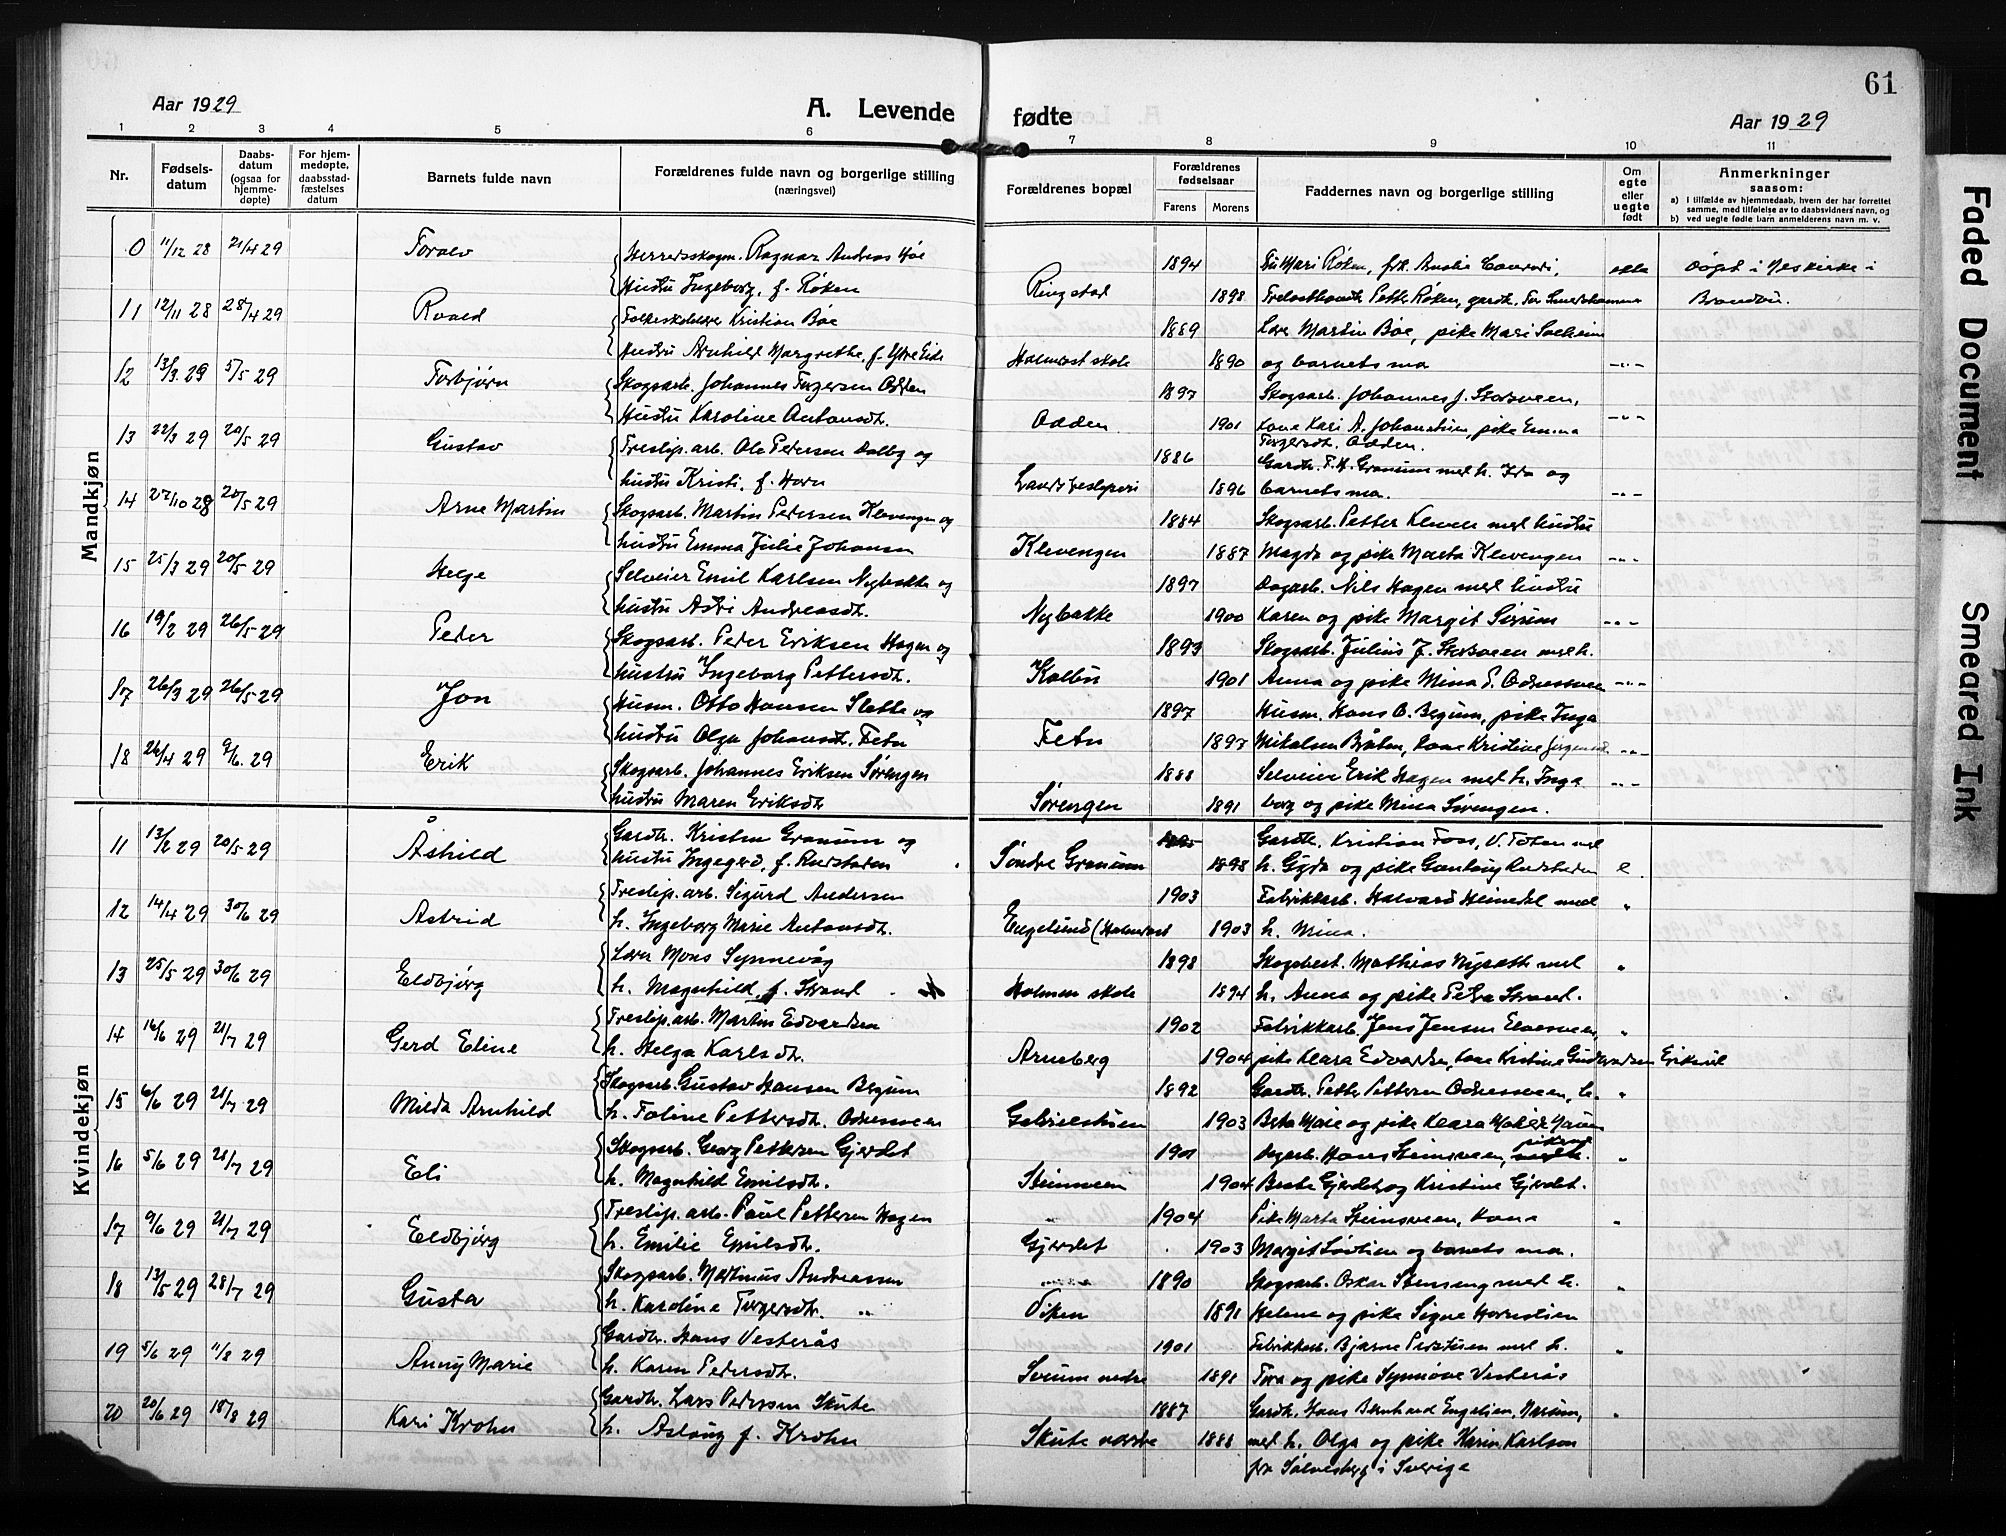 61
Aar 1929
A. Levende fødte
Aar 1929
1 2 3 4 5 6 7 8 9 10 11
Nr.
Fødsels-
datum
Daabs-
datum
(ogsaa for
hjemme-
døpte)
For hjem-
medøpte,
daabsstad-
fæstelses
datum
Barnets fulde navn
Forældrenes fulde navn og borgerlige stilling
(næringsvei)
Forældrenes bopæl
Forældrenes
fødselsaar
Farens Morens
Faddernes navn og borgerlige stilling
Om
egte
eller
uegte
født
Anmerkninger
saasom:
a) I tilfælde av hjemmedaab, hvem der har forrettet
samme, med tilføielse av to daabsvidners navn, og
b) ved uegte fødte barn anmelderens navn m. v.
Mandkjøn
0 11/12 28 21/4 29 Toralv Herredsskogm. Ragnar Andreas Høe 1894 Mari Røken, frk. egte Døpt i Neskirke i
Hustru Ingeborg, f. Røken Ringstad 1898 Petter Røken, gardbr. Brandbu.
11 12/11 28 28/4 29 Roald Folkeskolelærer Kristian Bøe 1889 Lærer Martin Bøe, pike Mari Solheim
Hustru Arnhild Margrethe, f. Ytre Eide Holmrast skole 1890 og barnets mor -"-
12 13/3 29 5/5 29 Torbjørn Skogsarb. Johannes Torgersen Odden 1897 Skogsarb. Johannes J. Storsveen,
Hustru Karoline Antonsdtr. Odden 1901 kone Kari A. Johanstuen, pike Emma -"-
Torgersdtr. Odden.
13 22/3 29 20/5 29 Gustav Treslip.arb. Ole Pedersen Dalby og 1886 Gardbr. T. H. Granum med h. Ida og
hustru Kristi, f. Horn 1896 barnets mor. -"-
14 27/10 28 20/5 29 Arne Martin Skogsarb. Martin Pedersen Klevengen og 1884 Skogsarb. Petter Kleven med hustru
hustru Emma Julie Johansen Klevengen 1887 Magda og pike Marta Klevengen -"-
15 25/3 29 20/5 29 Helge Selveier Emil Karlsen Nybakke og 1897 Dagarb. Nils Hagen med hustru
hustru Astri Andreasdtr. Nybakke 1900 Karen og pike Margit Sørum -"-
16 19/2 29 26/5 29 Peder Skogsarb. Peder Eriksen Hagen og 1893 Skogsarb. Julius J. Storsveen med h.
hustru Ingeborg Pettersdtr. Kolbu 1901 Anna og pike Mina P. Odnesveen -"-
17 26/3 29 26/5 29 Jon Husm. Otto Hansen Slette og 1897 Husm. Hans O. Begum, pike Inga
hustru Olga Johansdtr. Fetu Fetu 1897 Mikalsen Bråten, kone Kristine -"-
18 26/4 29 9/6. 29 Erik Skogsarb. Johannes Eriksen Sørengen 1888 Selveier Erik Hagen med h. Inge- -"-
hustru Maren Eriksdtr Sørengen 1891 borg og pike Mina Sørengen.
Kvindekjøn
11 13/2 29 20/5 29 Åshild Gardbr. Kristen Granum og Gardbr. Kristian Foss, V. Toten med
hustru Ingegerd, f. Rudstaden Søndre Granum 1898 h. Gyda og pike Gunlaug Rudstaden e.
12 14/4 29 30/6 29 Astrid Treslip.arb. Sigurd Andersen 1903 Fabrikkarb. Halvard Heimdal med "
h. Ingeborg Marie Antonsdtr. Engelund (Holmrast 1903 h. Mina.
13 25/5 29 30/6 29 Eldbjørg Lærer Mons Synnevåg 1898 Skogbest. Mathias Nysæth med "
h. Magnhild, f. Strand Holmen skole 1894 h. Anna og pike Petra Strand.
14 16/6 29 21/7 29 Gerd Eline Treslip.arb. Martin Edvardsen 1902 Fabrikkarb. Jens Jensen Elvesveen, "
h. Helga Karlsdtr. Arneberg 1904 pike Klara Edvardsen, kone Kristine Gudbrandsen Eriksrud
15 6/6 29 21/7 29 Milda Arnhild Skogsarb. Gustav Hansen Begum 1892 Gardbr. Petter Pettersen Odnesveen, h. "
h. Toline Pettersdtr. Odnesveen Gabrielstuen 1903 Berta Marie og pike Klara
16 5/6 29 21/7 29 Eli Skogsarb. Georg Pettersen Gjerdet 1901 Dagarb. Hans Steinsveen, "
h. Magnhild Emilsdtr. Steinsveen 1904 Beate Gjerdet og Kristine Gjerdet.
17 9/6 29 21/7 29 Eldbjørg Treslip.arb. Paul Pettersen Hagen 1904 Pike Marta Steinsveen, kona "
h. Emilie Emilsdtr. Gjerdet 1903 Margit Løvlien og barnets mor.
18 13/5 29 28/7 29 Gusta Skogsarb. Martinus Andreassen 1890 Skogsarb. Oskar Stenseng med h. "
h. Karoline Torgersdtr. Viken 1891 Helene og pike Signe Hornslien
19 5/6 29 11/8 29 Anny Marie Gardbr. Hans Vesterås 1901 Fabrikkarb. Bjarne Perstuen med h. "
h. Karen Pedersdtr. Sørum nedre 1891 Tora og pike Synnøve Vesterås
20 20/6 29 18/8 29 Kari Krohn Gardbr. Lars Pedersen Skute 1887 Gardbr. Hans Bernhard Engelien, "
h. Aslaug f. Krohn Skute nordre 1888 med h. Olga og pike Karin Karlson
fra Sølvesborg i Sverige
Faded Document
Smeared Ink